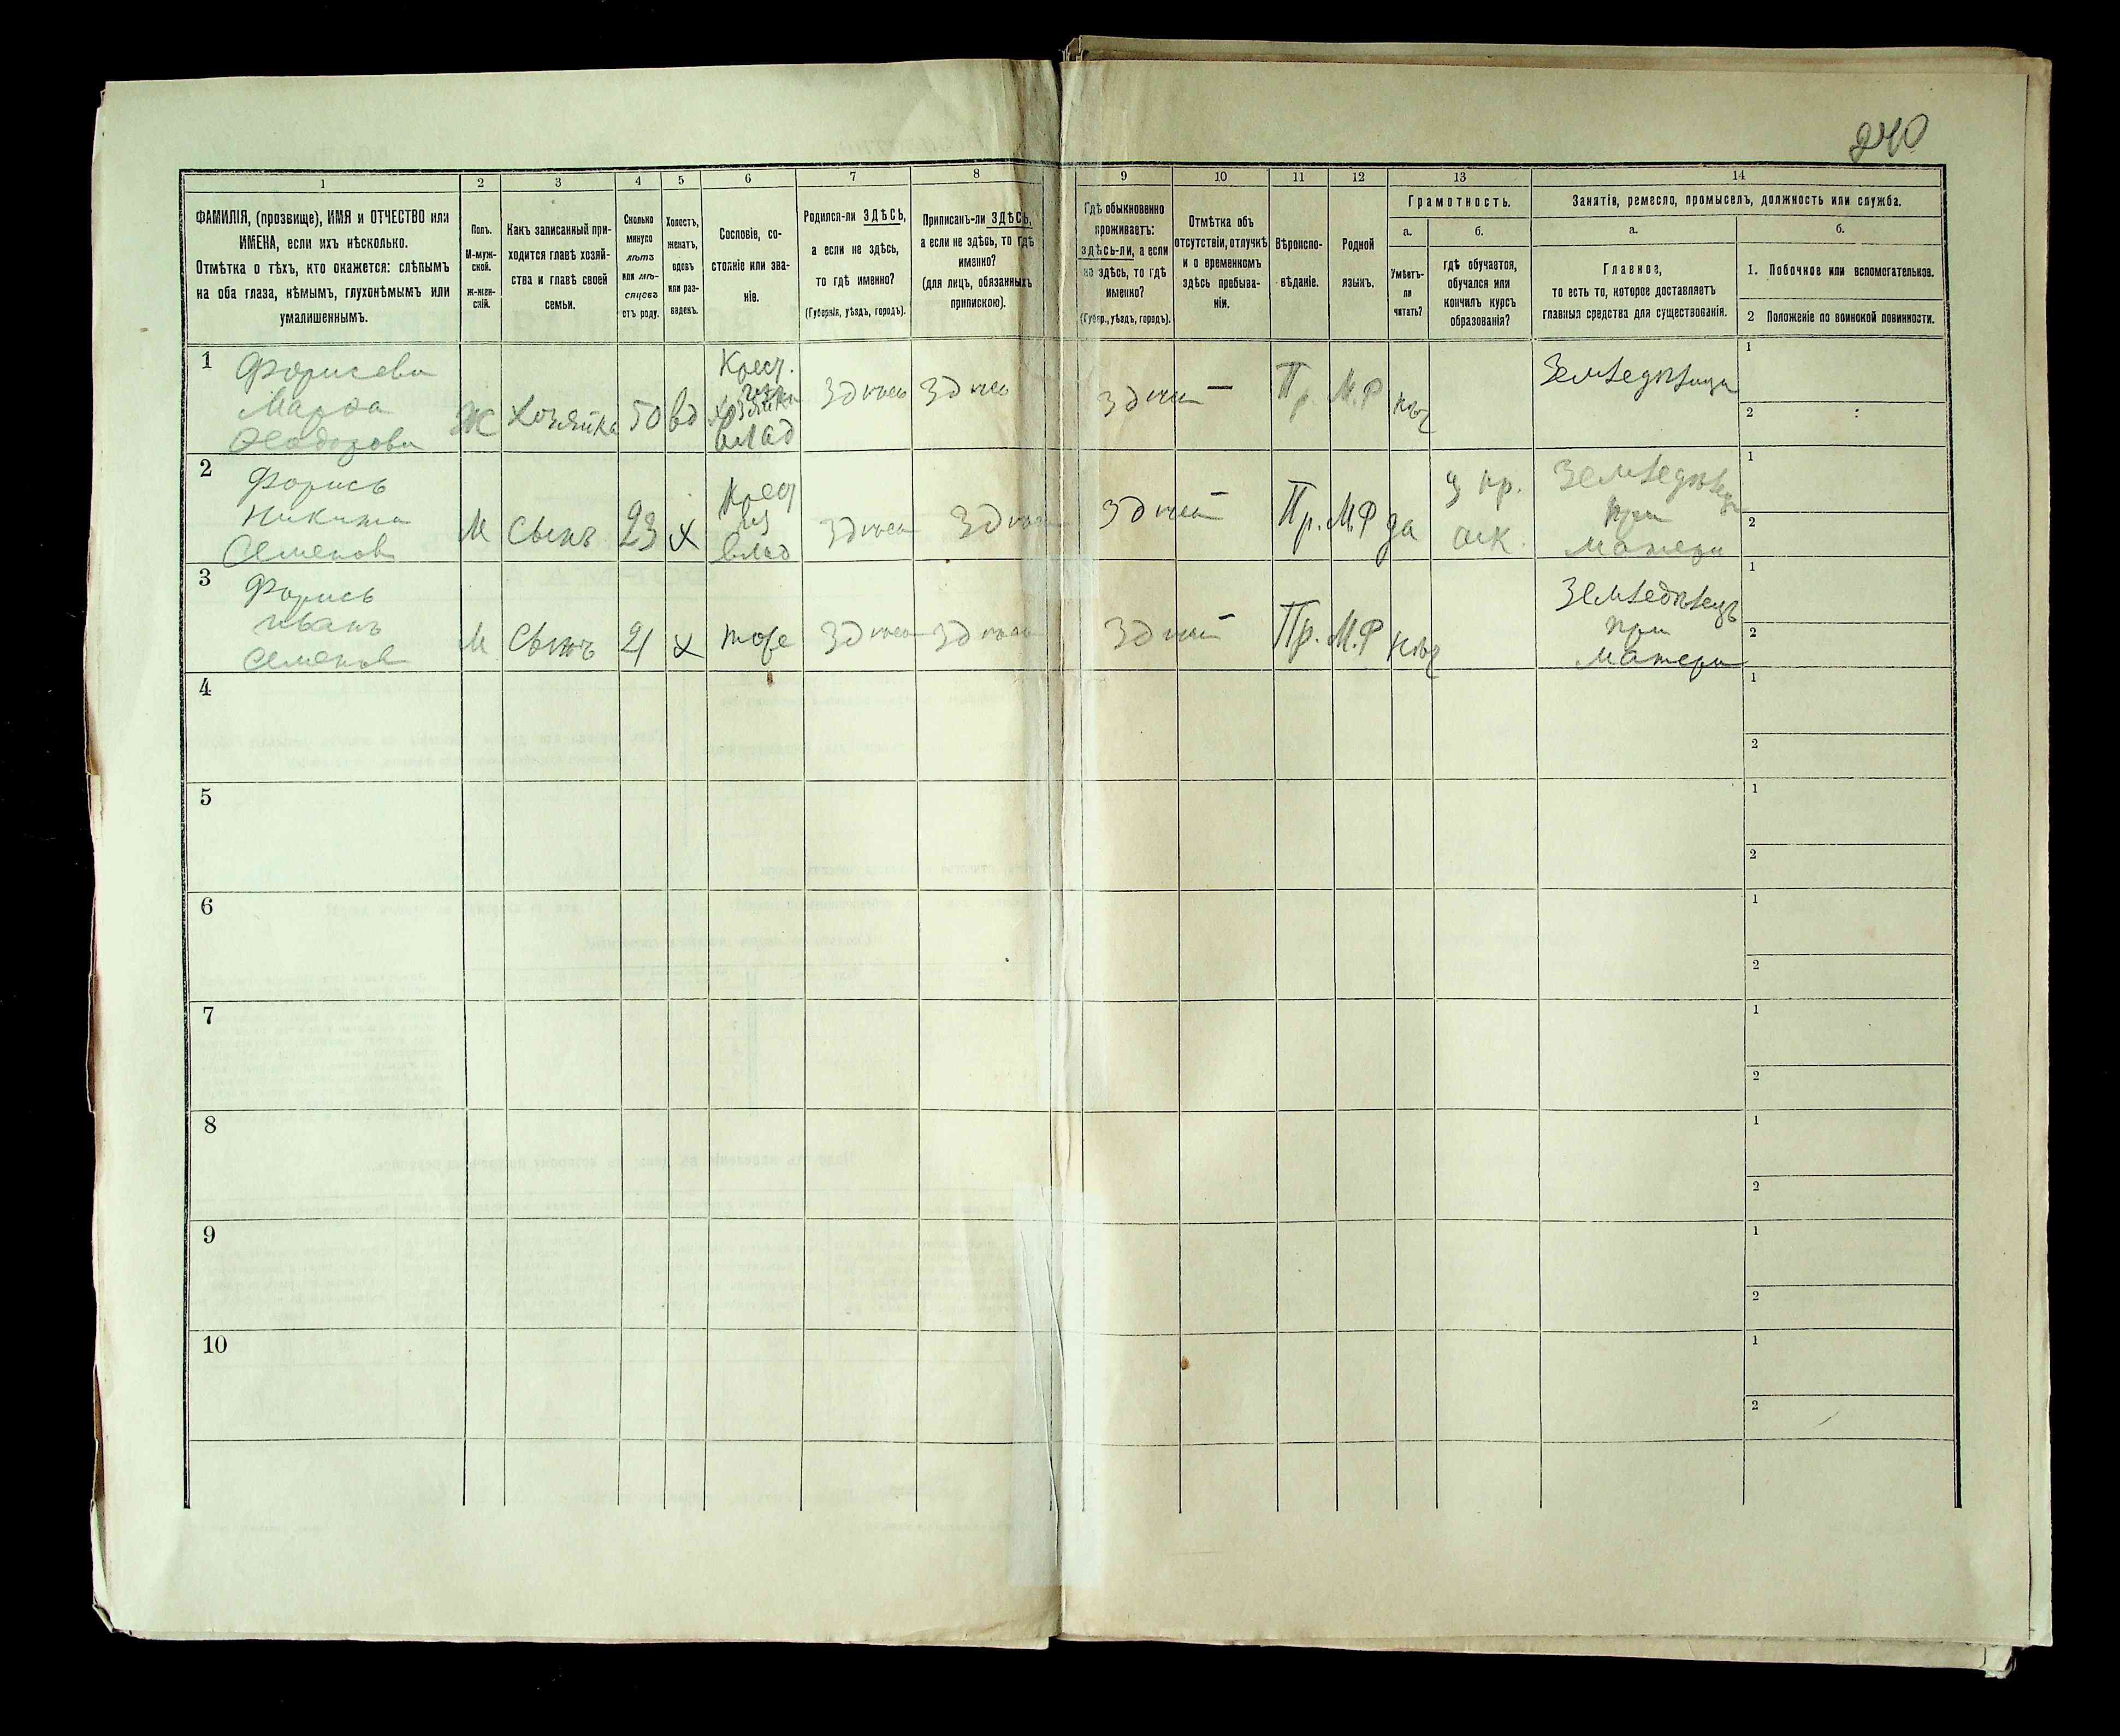 240
1 2 3 4 5 6 7 8 9 10 11 12 13 14
ФАМИЛІЯ, (прозвище), ИМЯ и ОТЧЕСТВО или
ИМЕНА, если ихъ нѣсколько.
Отмѣтка о тѣхъ, кто окажется: слѣпымъ
на оба глаза, нѣмымъ, глухонѣмымъ или
умалишеннымъ.
Полъ.
М-муж-
ской.
ж-жен-
скій.
Какъ записанный при-
ходится главѣ хозяй-
ства и главѣ своей
семьи.
Сколько
минуло
лѣтъ
или мѣ-
сяцевъ
отъ роду.
Холостъ,
женатъ,
вдовъ
или раз-
веденъ.
Сословіе, со-
стояніе или зва-
ніе.
Родился-ли ЗДѢСЬ,
а если не здѣсь,
то гдѣ именно?
(Губернія, уѣздъ, городъ).
Приписанъ-ли ЗДѢСЬ,
а если не здѣсь, то гдѣ
именно?
(для лицъ, обязанныхъ
припискою).
Гдѣ обыкновенно
проживаетъ:
здѣсь-ли, а если
не здѣсь, то гдѣ
именно?
(Губер., уѣздъ, городъ).
Отмѣтка объ
отсутствіи, отлучкѣ
и о временномъ
здѣсь пребыва-
ніи.
Вѣроиспо-
вѣданіе.
Родной
языкъ.
Грамотность.
а.
Умѣетъ-
ли
читать?
б.
гдѣ обучается,
обучался или
кончилъ курсъ
образованія?
Занятіе, ремесло, промыселъ, должность или служба.
а.
Главное,
то есть то, которое доставляетъ
главныя средства для существованія.
б.
1. Побочное или вспомогательное.
2 Положеніе по воинской повинности.
1
Марфа
Ж хозяйка 50 вд
Крест.
влад
здѣсь здѣсь здѣсь — Пр. М.Р нѣт
1
2
2
Форисъ
Никита
Семенов
М Сынъ 23 х
Крест
из
влад
здѣсь здѣсь здѣсь — Пр. М.Р да
при
матери
1
2
3
Форисъ
Иванъ
Семенов
М Сынъ 21 х тоже здѣсь здѣсь здѣсь — Пр. М.Р нѣт
при
матери
1
2
4
1
2
5
1
2
6
1
2
7
1
2
8
1
2
9
1
2
10
1
2